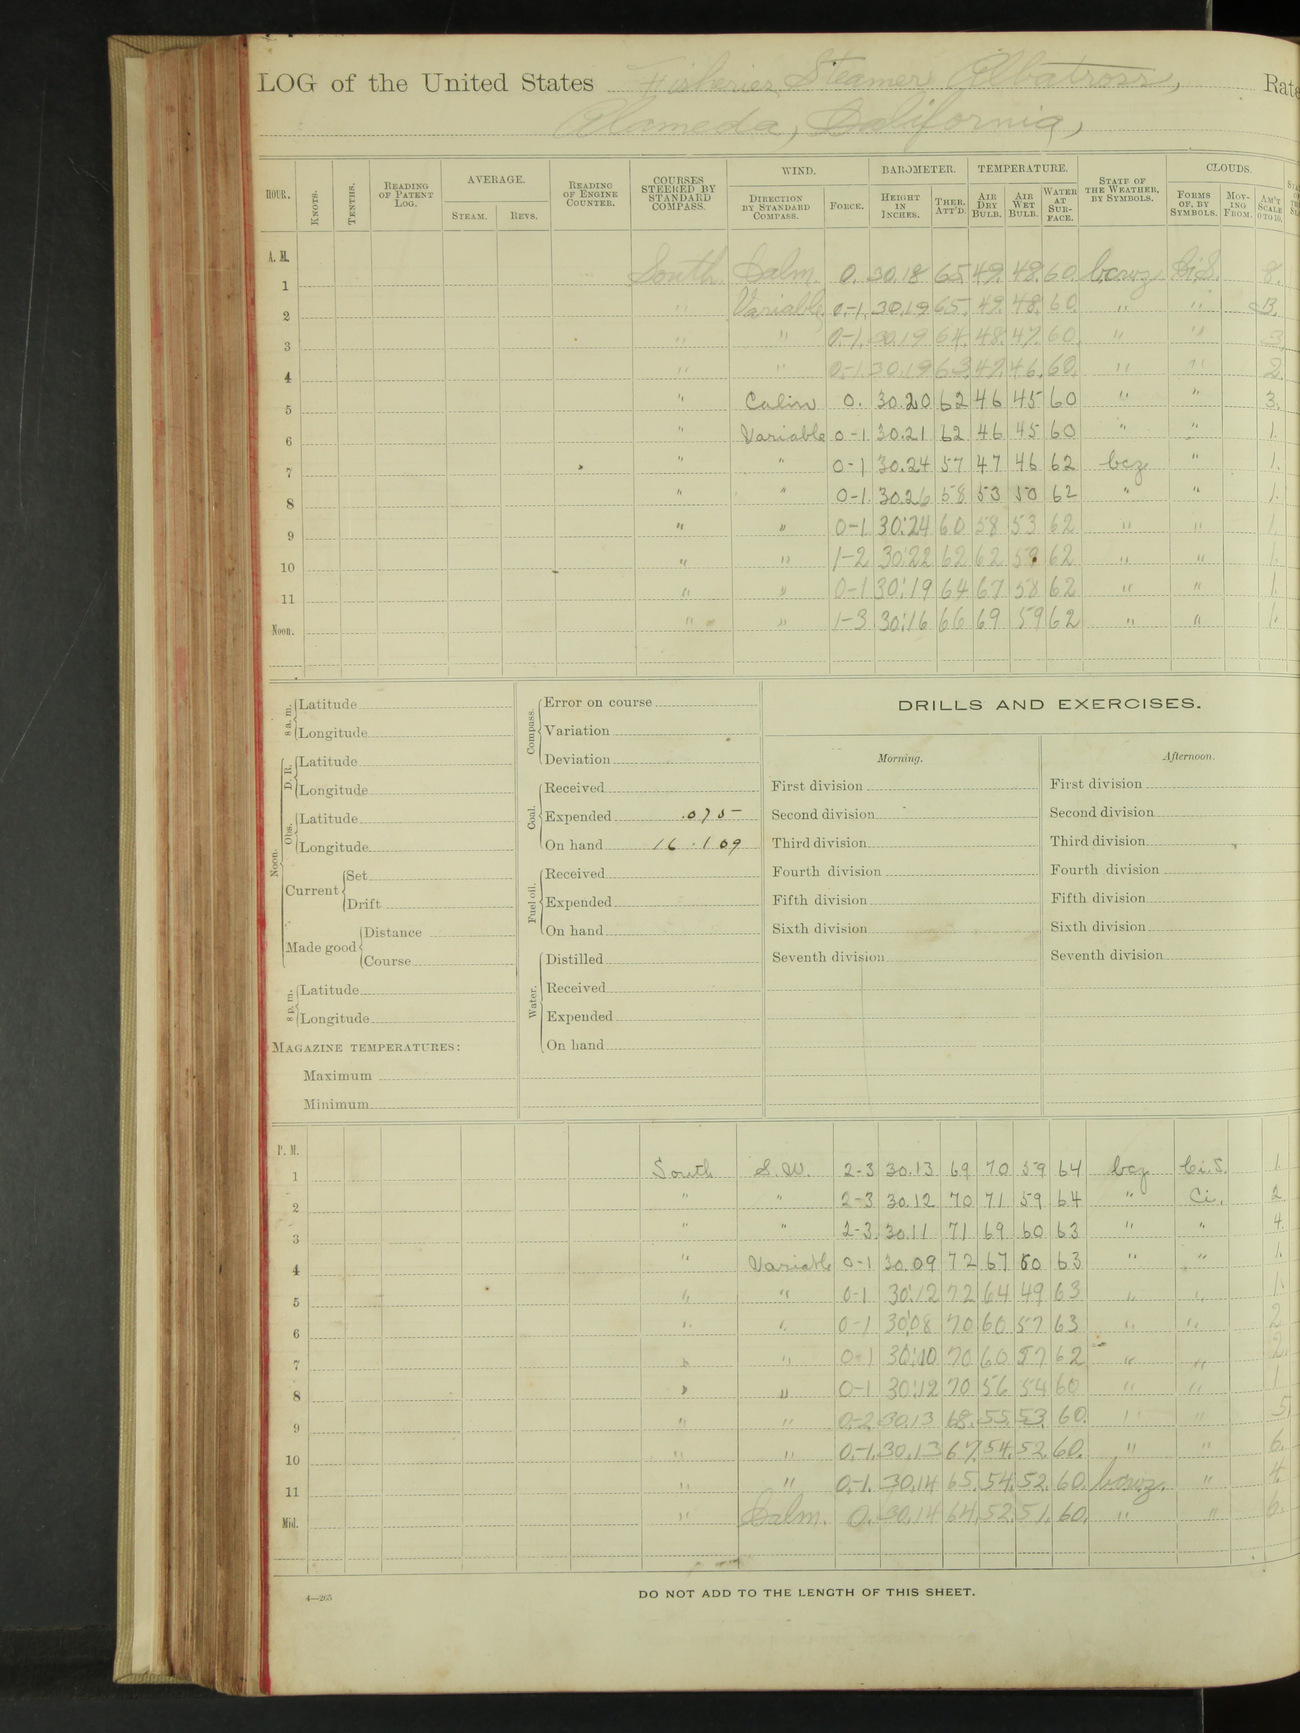 LOG of the United States Fisheries Steamer Albatross, Rate
Alameda, California,
HOUR. KNOTS. TENTHS. READING OF PATENT LOG. AVERAGE. STEAM. REVS. READING OF ENGINE COUNTER. COURSES STEERED BY STANDARD COMPASS. WIND. DIRECTION BY STANDARD COMPASS. FORCE. BAROMETER. HEIGHT IN INCHES. THER. ATT'D. TEMPERATURE. AIR DRY BULB. AIR WET BULB. WATER AT SURFACE. STATE OF THE WEATHER, BY SYMBOLS. CLOUDS. FORMS OF, BY SYMBOLS. MOVING FROM. AM'T SCALE 0 TO 10.
A. M.
1 South Calm. 0. 30.18 65. 49. 48. 60. bcwz Ci.S. 8.
2 " Variable 0-1. 30.19 65. 49. 48. 60. " " 3.
3 " " 0-1. 30.19 64. 48. 47. 60. " " 3.
4 " " 0-1 30.19 63. 47. 46. 60. " " 2.
5 " Calm 0. 30.20 62 46 45 60 " " 3.
6 " Variable 0-1 30.21 62 46 45 60 " " 1.
7 " " 0-1 30.24 57 47 46 62 bcz " 1.
8 " " 0-1. 30.26 58 53 50 62 " " 1.
9 " " 0-1 30.24 60 58 53 62 " " 1.
10 " " 1-2 30.22 62 62 59 62 " " 1.
11 " " 0-1 30.19 64 67 58 62 " " 1.
Noon. " " 1-3 30.16 66 69 59 62 " " 1.
8 a. m. Latitude
Longitude
Noon. D. R. Latitude
Longitude
Obs. Latitude
Longitude
Current Set
Drift
Made good Distance
Course
8 p. m. Latitude
Longitude
MAGAZINE TEMPERATURES:
Maximum
Minimum
Compass. Error on course
Variation
Deviation
Coal. Received
Expended .075
On hand 16.109
Fuel oil. Received
Expended
On hand
Water. Distilled
Received
Expended
On hand
DRILLS AND EXERCISES.
Morning. Afternoon.
First division First division
Second division Second division
Third division Third division
Fourth division Fourth division
Fifth division Fifth division
Sixth division Sixth division
Seventh division Seventh division
P. M.
1 South S.W. 2-3 30.13 69 70 59 64 bcz Ci.S. 1.
2 " " 2-3 30.12 70 71 59 64 " Ci. 2
3 " " 2-3 30.11 71 69 60 63 " " 4.
4 " Variable 0-1 30.09 72 67 60 63 " " 1.
5 " " 0-1 30.12 72 64 49 63 " " 1.
6 " " 0-1 30.08 70 60 57 63 " " 2
7 " " 0-1 30.10 70 60 57 62 " " 2.
8 " " 0-1 30.12 70 56 54 60 " " 1
9 " " 0-2 30.13 68. 55. 53. 60. " " 5.
10 " " 0-1. 30.13 67. 54. 52. 60. " " 6.
11 " " 0-1. 30.14 65. 54. 52. 60. bcwz. " 4.
Mid. " Calm. 0. 30.14 64. 52. 51. 60. " " 6.
4—265 DO NOT ADD TO THE LENGTH OF THIS SHEET.